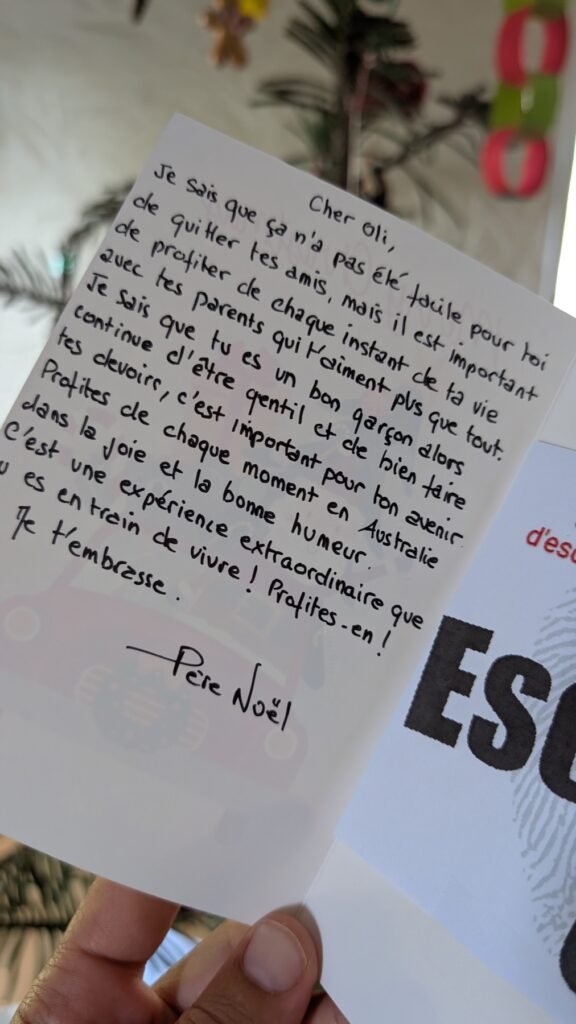 Cher Oli,
Je sais que ça n'a pas été facile pour toi
de quitter tes amis, mais il est important
de profiter de chaque instant de ta vie
avec tes parents qui t'aiment plus que tout.
Je sais que tu es un bon garçon alors
continue d'être gentil et de bien faire
tes devoirs, c'est important pour ton avenir.
Profites de chaque moment en Australie
dans la joie et la bonne humeur.
C'est une expérience extraordinaire que
u es en train de vivre ! Profites-en !
Je t'embrasse.
Père Noël
d'esc
ESC